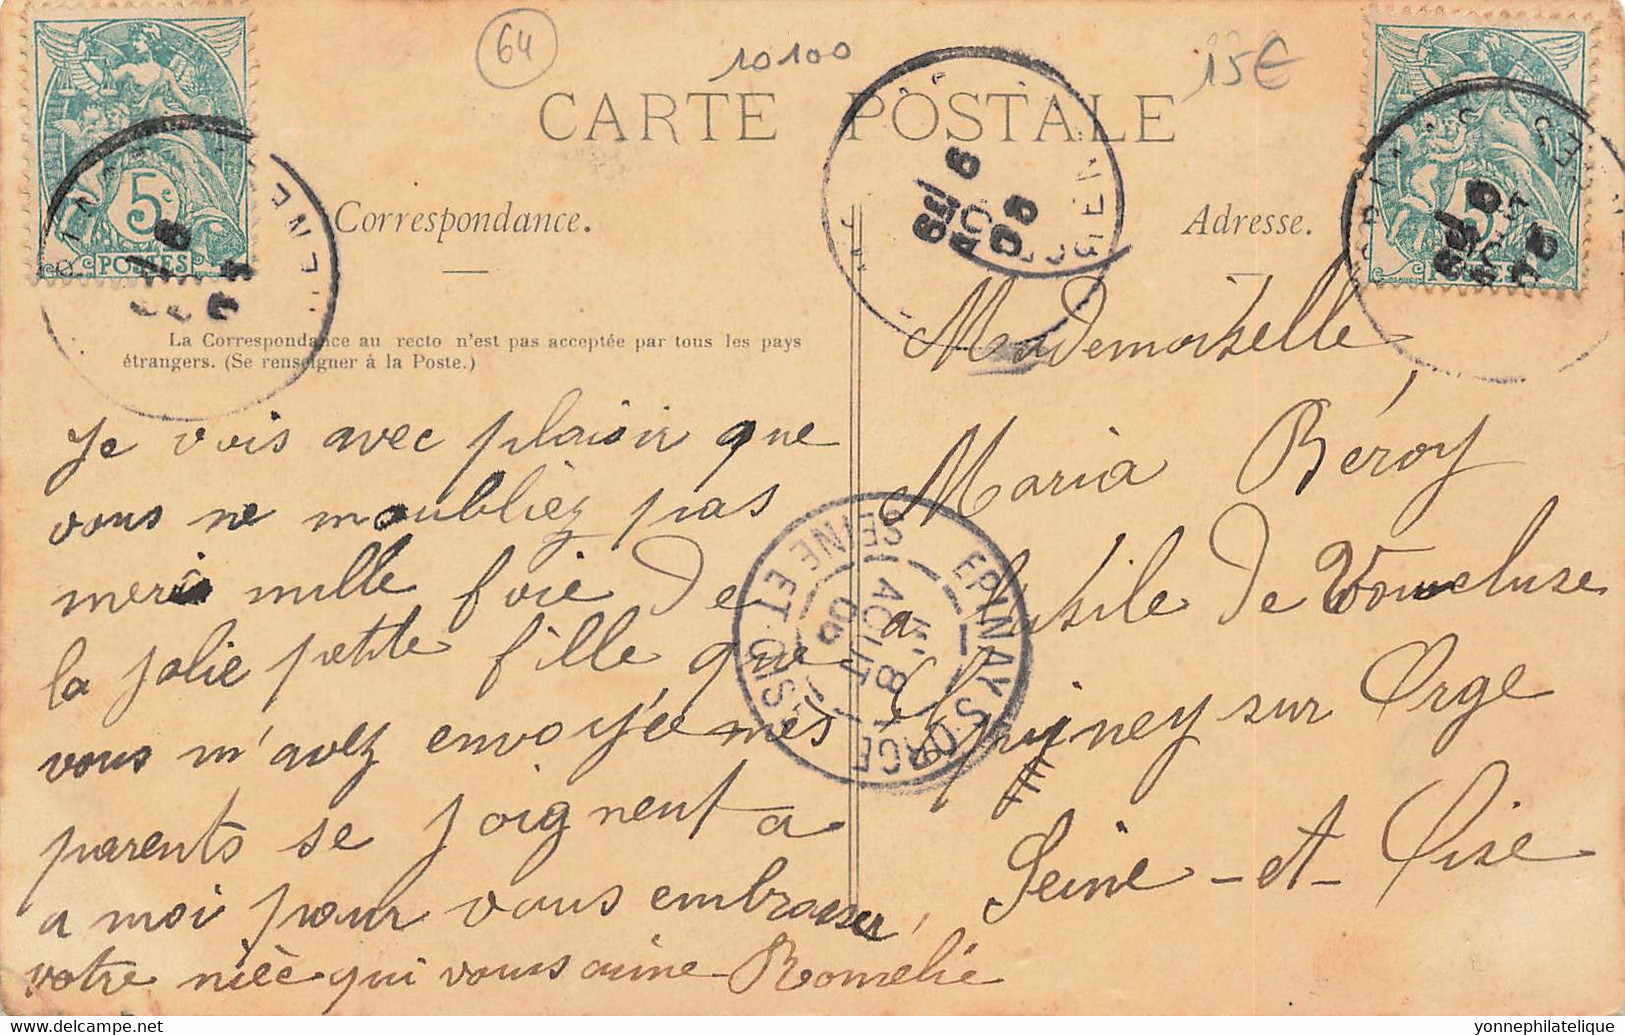 64
10100
15€
CARTE POSTALE
5c
POSTES
5c
POSTES
Correspondance.
Adresse.
La Correspondance au recto n'est pas acceptée par tous les pays
étrangers. (Se renseigner à la Poste.)
Je vois avec plaisir que
vous ne m'oubliez pas
merci mille foie de
la jolie petite fille que
vous m'avez envoyée mes
parents se joignent a
a moi pour vous embrasser
votre nièce qui vous aime Romélie
Mademoiselle
Maria Béroy
a Asile de Voucluse
Epiney sur Orge
Seine-et-Oise
EPINAY S. ORGE
SEINE ET OISE
8
AOUT
06
yonnephilatelique